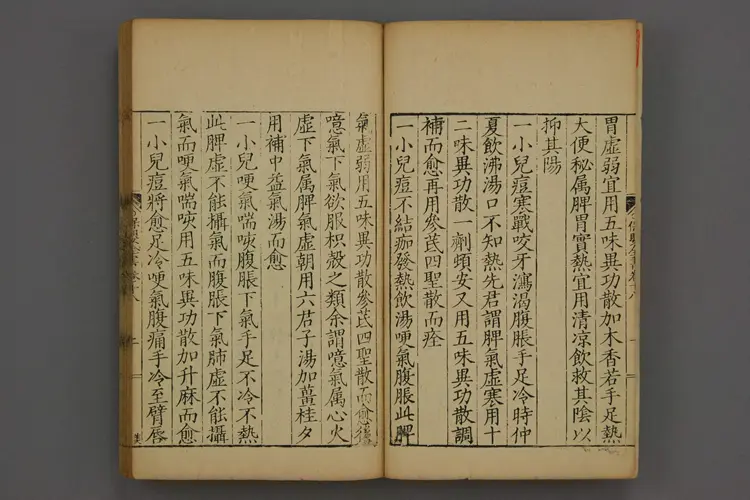 胃虛弱宜用五味異功散加木香若手足熱
大便秘属脾胃實熱宜用清凉飲救其陰以
抑其陽
一小兒痘寒戰咬牙瀉渴腹脹手足冷時仲
夏飲沸湯口不知熱先君謂脾氣虛寒用十
二味異功散一劑頓安又用五味異功散調
補而愈再用參芪四聖散而痊
一小兒痘不結痂發熱飲湯哽氣腹脹此脾
氣虛弱用五味異功散參芪四聖散而愈後
噫氣下氣欲服枳殼之類余謂噫氣属心火
虛下氣属脾氣虛朝用六君子湯加薑桂夕
用補中益氣湯而愈
一小兒哽氣喘咳腹脹下氣手足不冷不熱
此脾虛不能攝氣而腹脹下氣肺虛不能攝
氣而哽氣喘咳用五味異功散加升麻而愈
一小兒痘將愈足冷哽氣腹痛手冷至臂唇